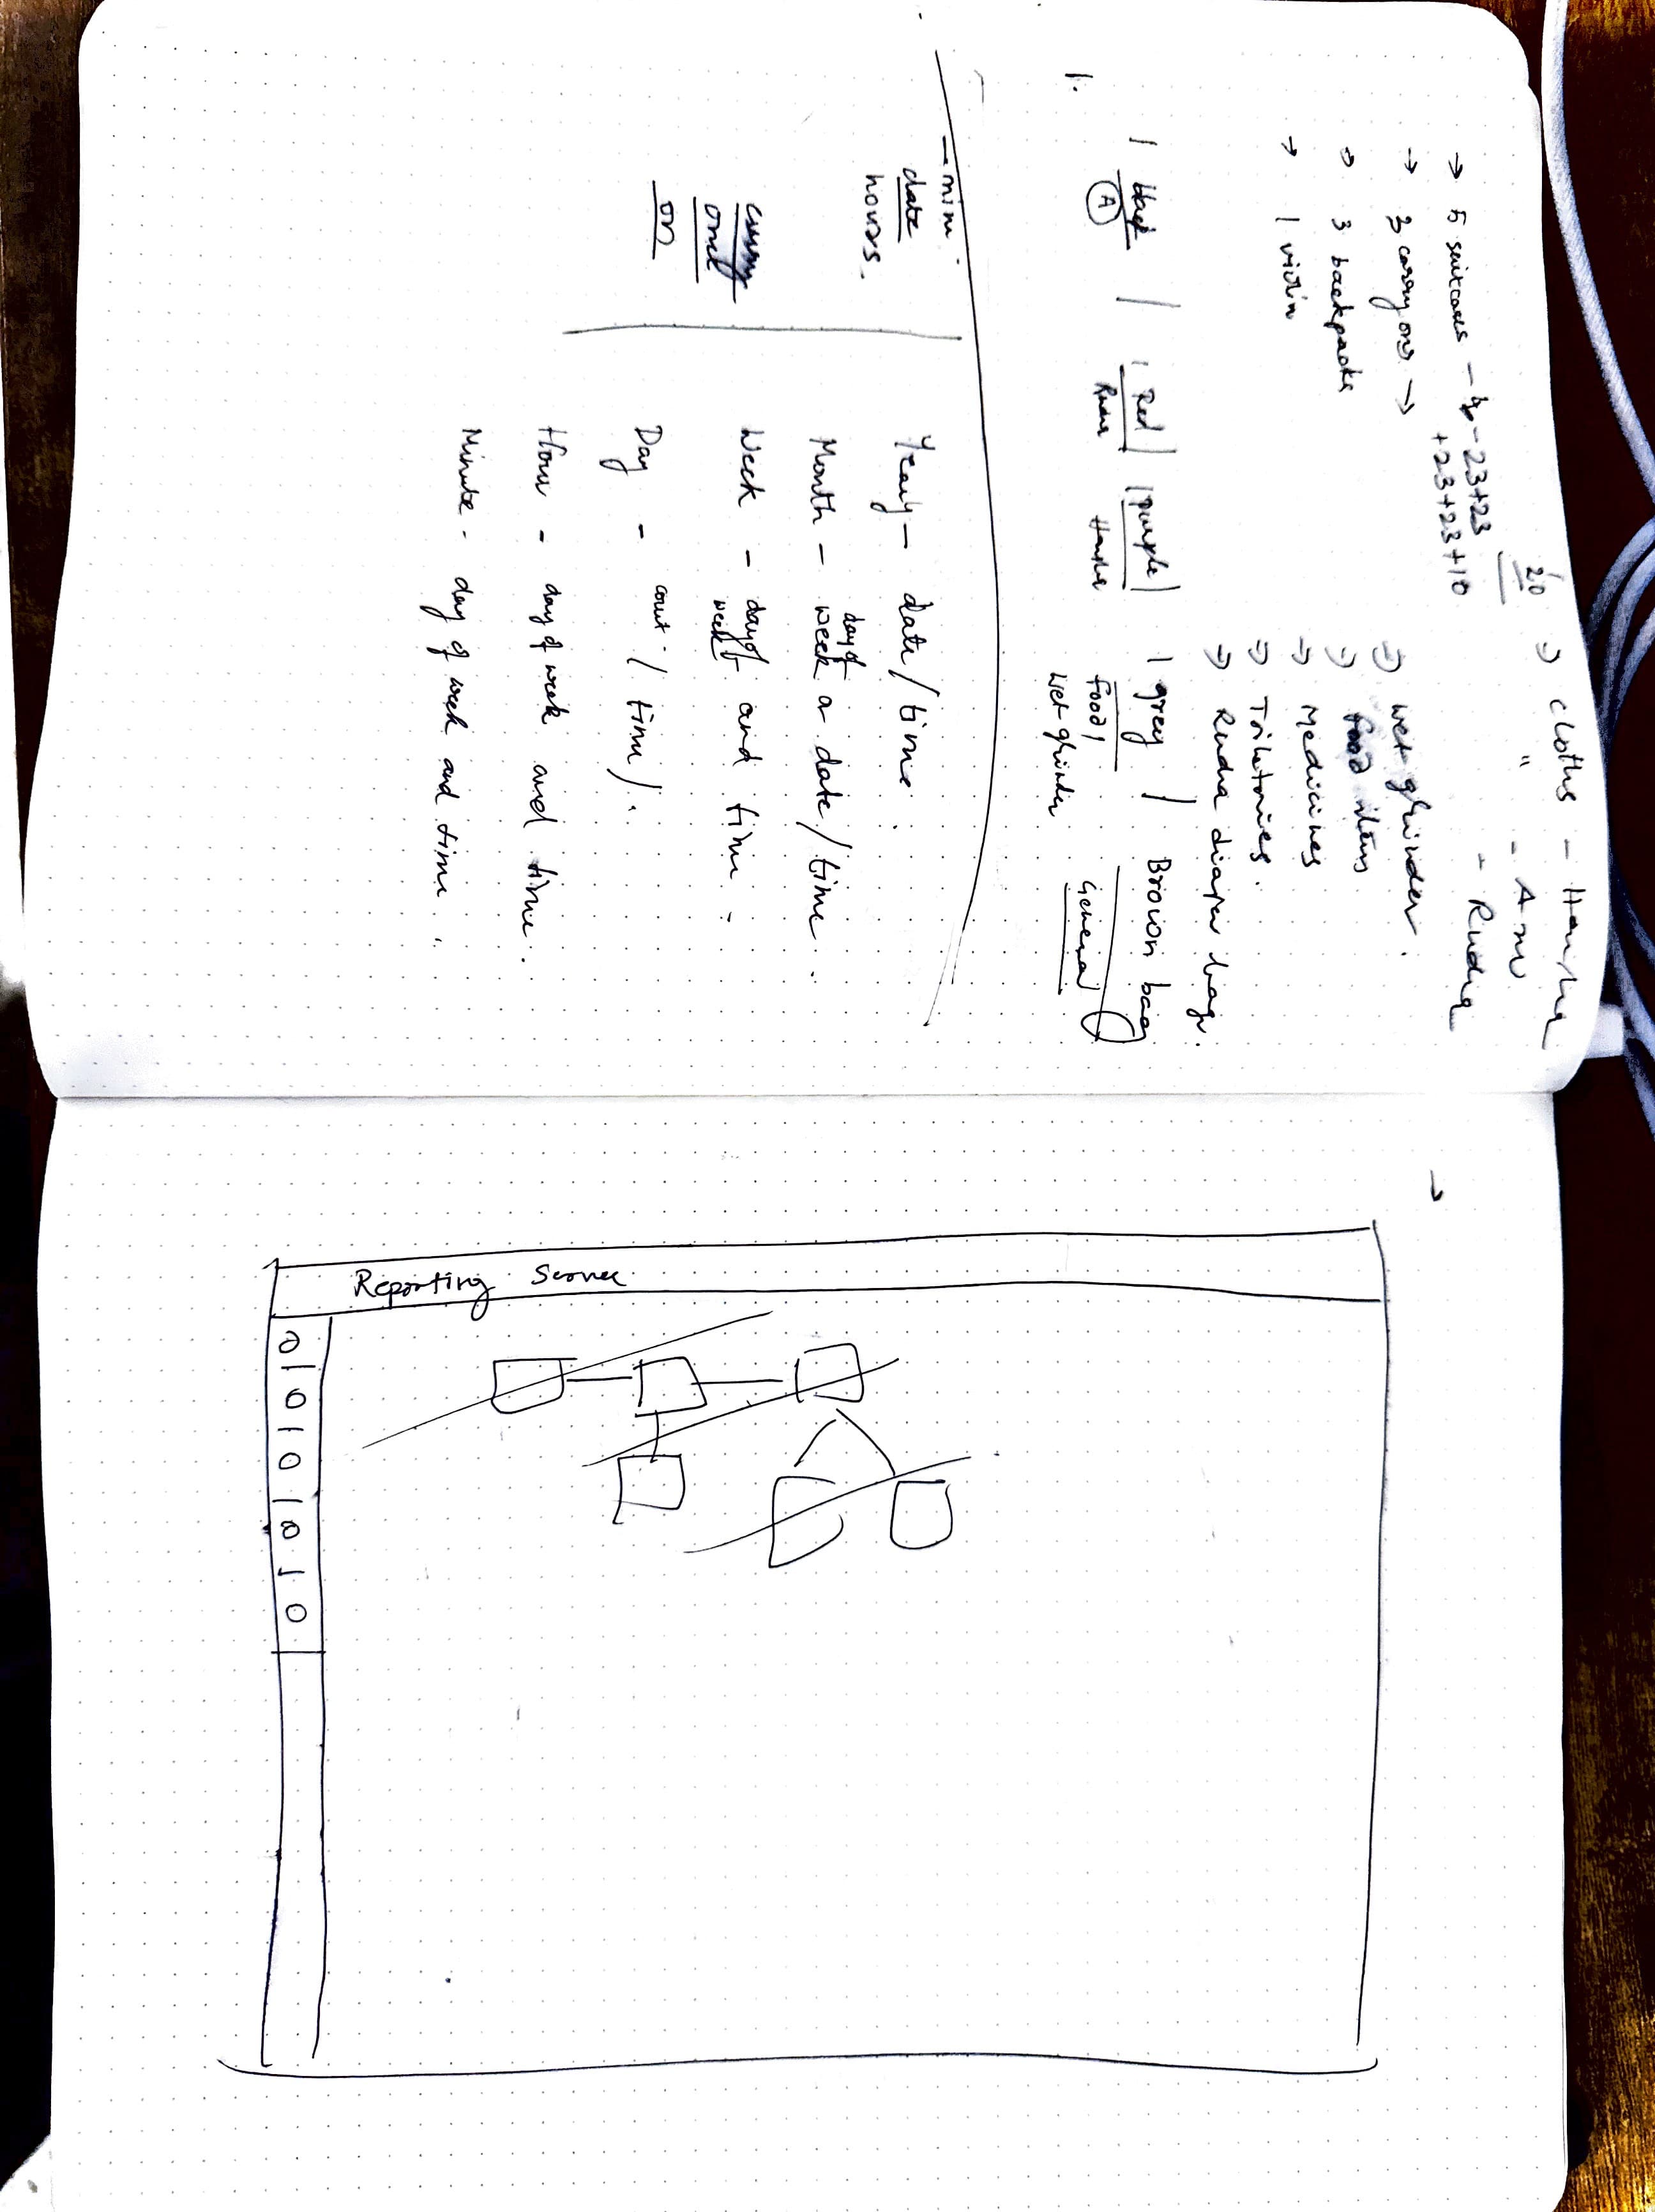 → 5 suitcases - 4 - 23+23
+23+23+10
20
→ 3 carry ons →
→ 3 backpacks
→ 1 violin
→ cloths - Harsha
" - Anu
- Rudra
→ wet grinder.
→ food items
→ Medicines
→ Toiletories.
→ Rudra diaper bag.
1.
| black | | Red | | purple | | grey | Brown bag
A Rudra Harsha food, General
wet grinder
- min
date
hours.
every
one
on
Yearly - date/time.
Month - day of week or date/time.
Week - day of week and time.
Day - count / time/.
Hour - day of week and time.
Minute - day of week and time.
→
Reporting Server
0
0
0
0
0